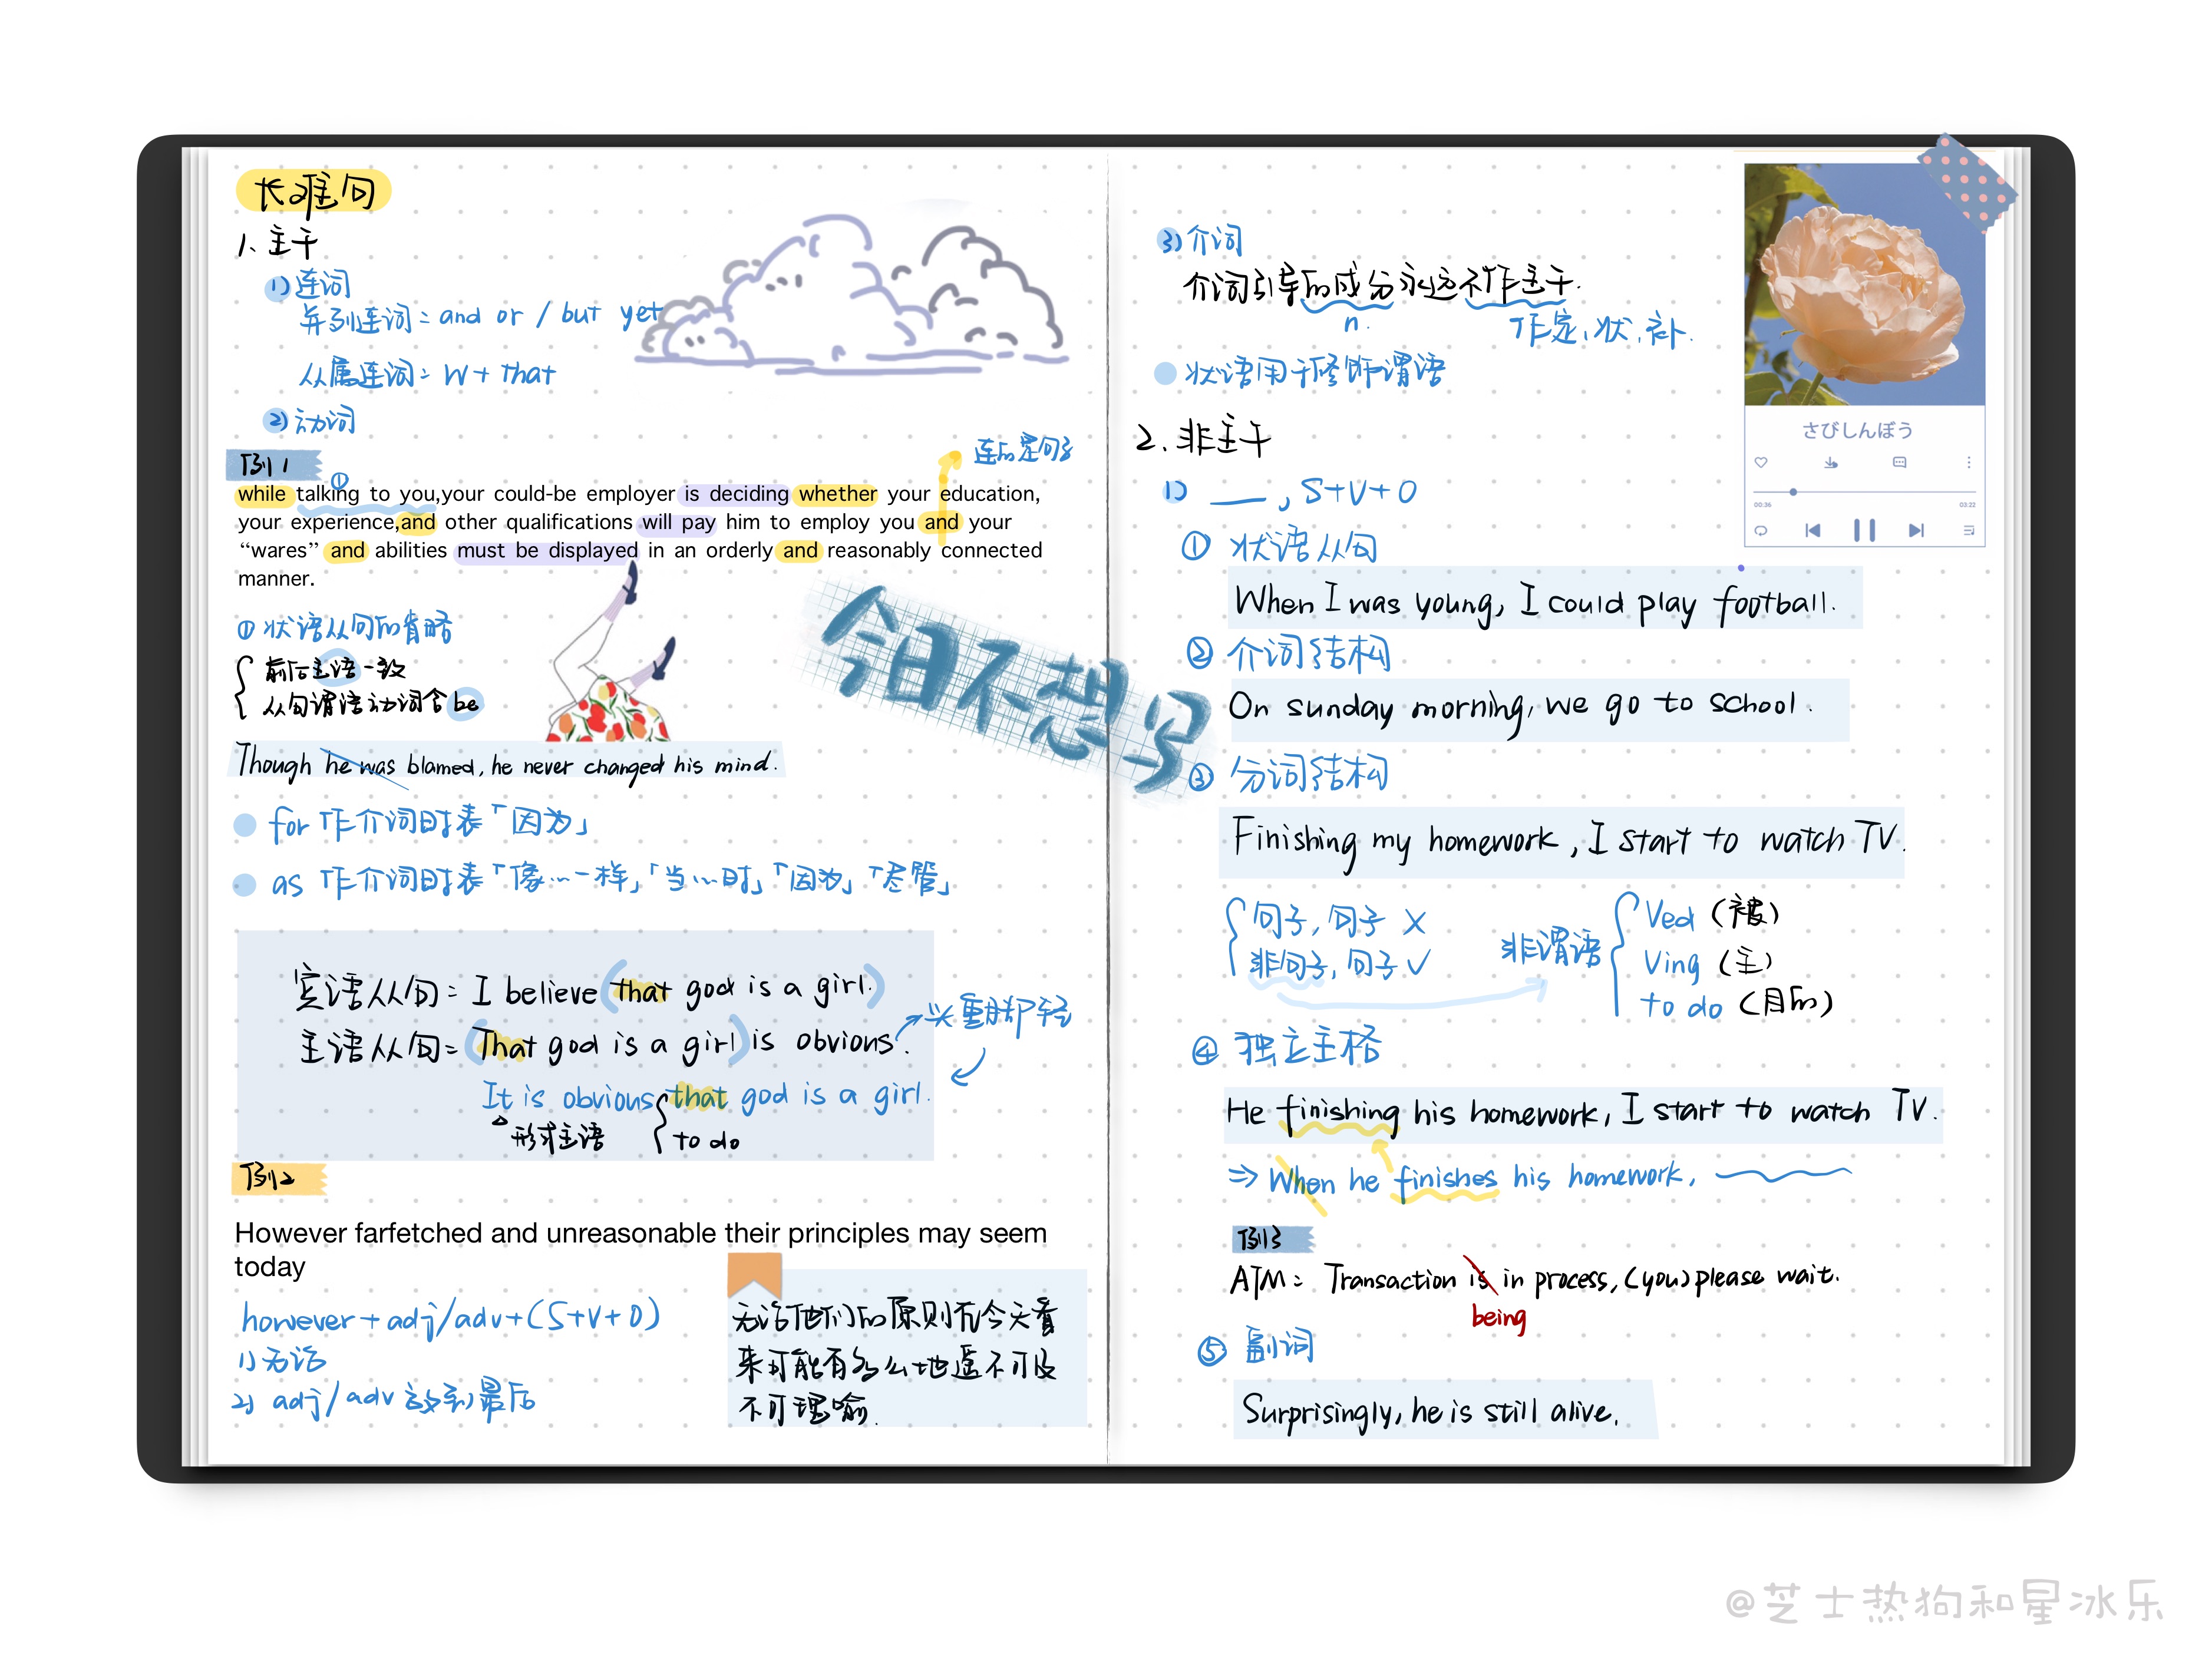 长难句
1、主干
1) 连词
并列连词：and or / but yet
从属连词：w + that
2) 动词
例1
连的是句子
①
while talking to you,your could-be employer is deciding whether your education,
your experience,and other qualifications will pay him to employ you and your
“wares” and abilities must be displayed in an orderly and reasonably connected
manner.
① 状语从句的省略
前后主语一致
从句谓语动词含be
Though he was blamed, he never changed his mind.
for 作介词时表「因为」
as 作介词时表「像…一样」「当…时」「因为」「尽管」
宾语从句：I believe (that god is a girl.)
主语从句：(That god is a girl) is obvious.
头重脚轻
It is obvious that god is a girl.
形式主语
to do
例2
However farfetched and unreasonable their principles may seem
today
however + adj/adv + (S+V+O)
1) 无论
2) adj/adv 放到最后
无论他们的原则在今天看
来可能有多么地遥不可及
不可理喻.
今日不想写
3) 介词
介词引导的成分永远不作主干.
n.
作定、状、补.
状语用于修饰谓语
2. 非主干
1) ___, S+V+O
① 状语从句
When I was young, I could play football.
② 介词结构
On sunday morning, we go to school.
③ 分词结构
Finishing my homework, I start to watch TV.
句子, 句子 ×
非句子, 句子 ✓
非谓语
Ved (被)
Ving (主)
to do (目的)
④ 独立主格
He finishing his homework, I start to watch TV.
⇒ When he finishes his homework,
例3
ATM： Transaction is in process, (you) please wait.
being
⑤ 副词
Surprisingly, he is still alive.
さびしんぼう
00:36
03:22
@芝士热狗和星冰乐